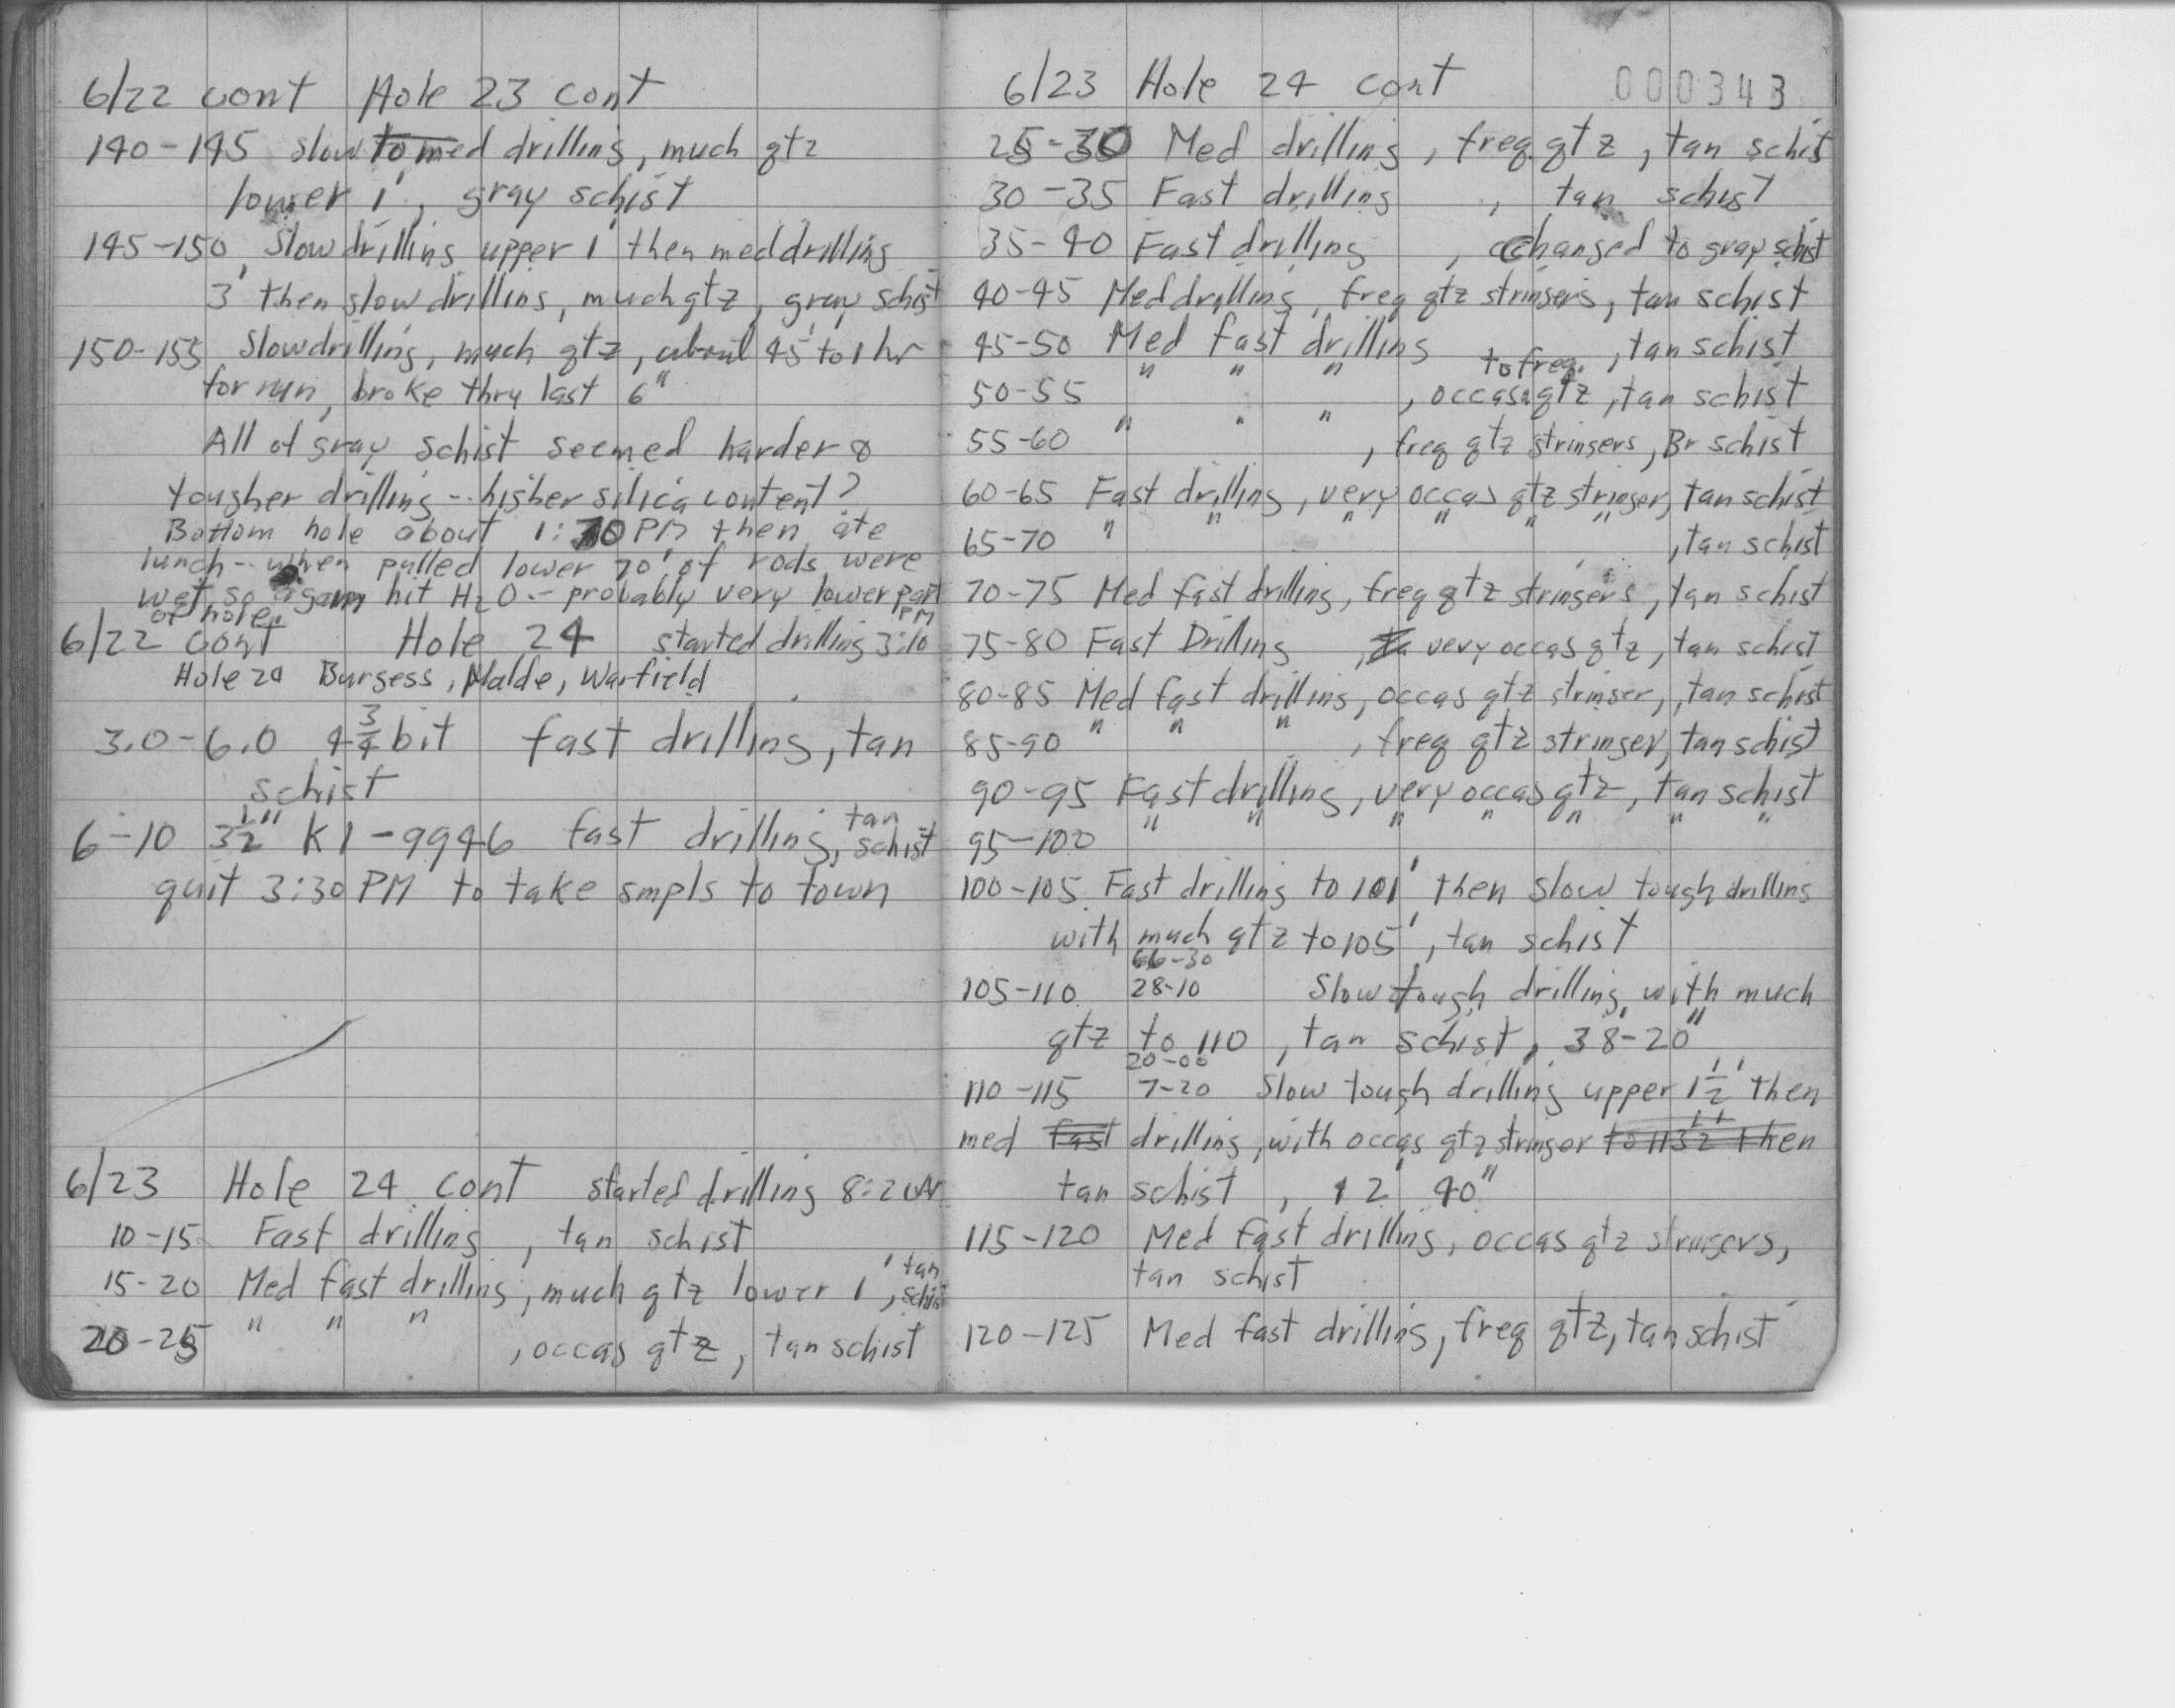 6/22 cont Hole 23 cont
140-145 slow to med drilling, much qtz
lower 1', gray schist
145-150 Slow drilling upper 1' then med drilling
3' then slow drilling, much qtz, gray schist
150-153 Slow drilling, much qtz, about 45' to 1 hr
for run, broke thru last 6"
All of gray schist seemed harder &
tougher drilling -- higher silica content?
Bottom hole about 1:10 PM then ate
lunch -- when pulled lower 70' of rods were
wet so again hit H2O -- probably very lower part
of hole. PM
6/22 cont Hole 24 started drilling 3:10
Hole 24 Burgess, Malde, Warfield
3.0-6.0 4 3/4 bit fast drilling, tan
schist
6-10 3 1/2" K1-9946 fast drilling, tan schist
quit 3:30 PM to take smpls to town
6/23 Hole 24 cont started drilling 8:20
10-15 Fast drilling, tan schist
15-20 Med fast drilling, much qtz lower 1', tan schist
20-25 " " " , occas qtz, tan schist
6/23 Hole 24 cont 000343
25-30 Med drilling, freq qtz, tan schist
30-35 Fast drilling , tan schist
35-40 Fast drilling , changed to gray schist
40-45 Med drilling, freq qtz stringers, tan schist
45-50 Med fast drilling , tan schist
50-55 " " " , occas to freq. qtz, tan schist
55-60 " " " , freq qtz stringers, Br schist
60-65 Fast drilling, very occas qtz stringer, tan schist
65-70 " " " " " " , tan schist
70-75 Med fast drilling, freq qtz stringers, tan schist
75-80 Fast Drilling , very occas qtz, tan schist
80-85 Med fast drilling, occas qtz stringer, tan schist
85-90 " " " , freq qtz stringer, tan schist
90-95 Fast drilling, very occas qtz, tan schist
95-100 " " " " " " "
100-105 Fast drilling to 101' then slow tough drilling
with much qtz to 105', tan schist
66-30
105-110 28-10 Slow tough drilling with much
qtz to 110, tan schist, 38'-20"
20-00
110-115 7-20 Slow tough drilling upper 1 1/2' then
med fast drilling, with occas qtz stringer to 113 1/2' then
tan schist, 12' 40"
115-120 Med fast drilling, occas qtz stringers,
tan schist
120-125 Med fast drilling, freq qtz, tan schist